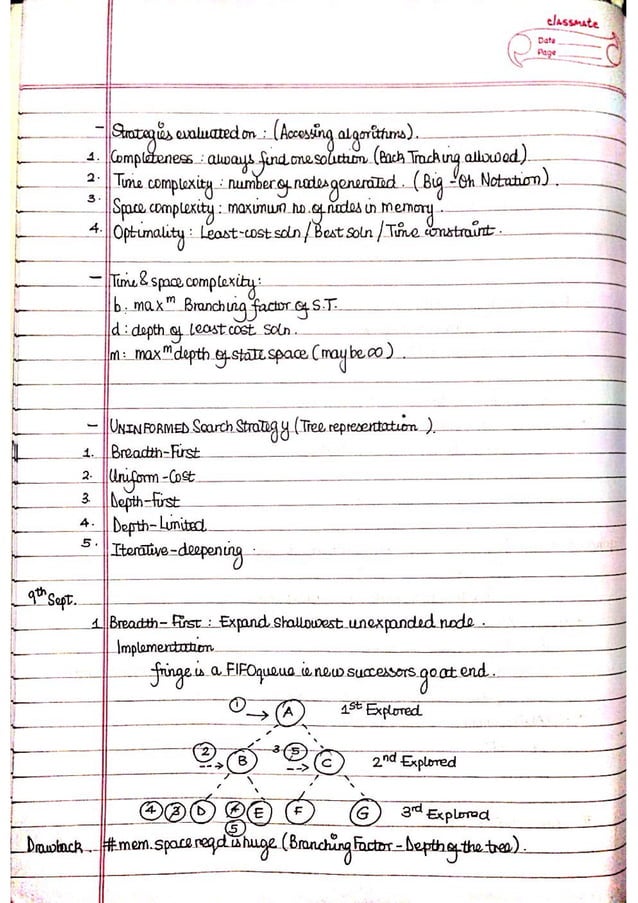 classmate
Date
Page
- Strategies evaluated on : (Accessing algorithms).
1. Completeness : always find one solution (Back Tracking allowed)
2. Time complexity : number of nodes generated. (Big-Oh Notation).
3. Space complexity : maximum no. of nodes in memory.
4. Optimality : Least-cost soln / Best soln / Time constraint.
- Time & space complexity :
b : maxᵐ Branching factor of S.T.
d : depth of least cost soln.
m : maxᵐ depth of state space (may be ∞).
- UNINFORMED Search Strategy (Tree representation).
1. Breadth-First
2. Uniform-Cost
3. Depth-First
4. Depth-Limited
5. Iterative-deepening.
9th Sept.
1 Breadth-First : Expand shallowest unexpanded node.
Implementation
fringe is a FIFO queue ie new successors go at end.
1 → A 1st Explored
2 → B 3 5 → C 2nd Explored
4 3 D E F G 3rd Explored
5
Drawback. #mem. space reqd is huge (Branching Factor - Depth of the tree).